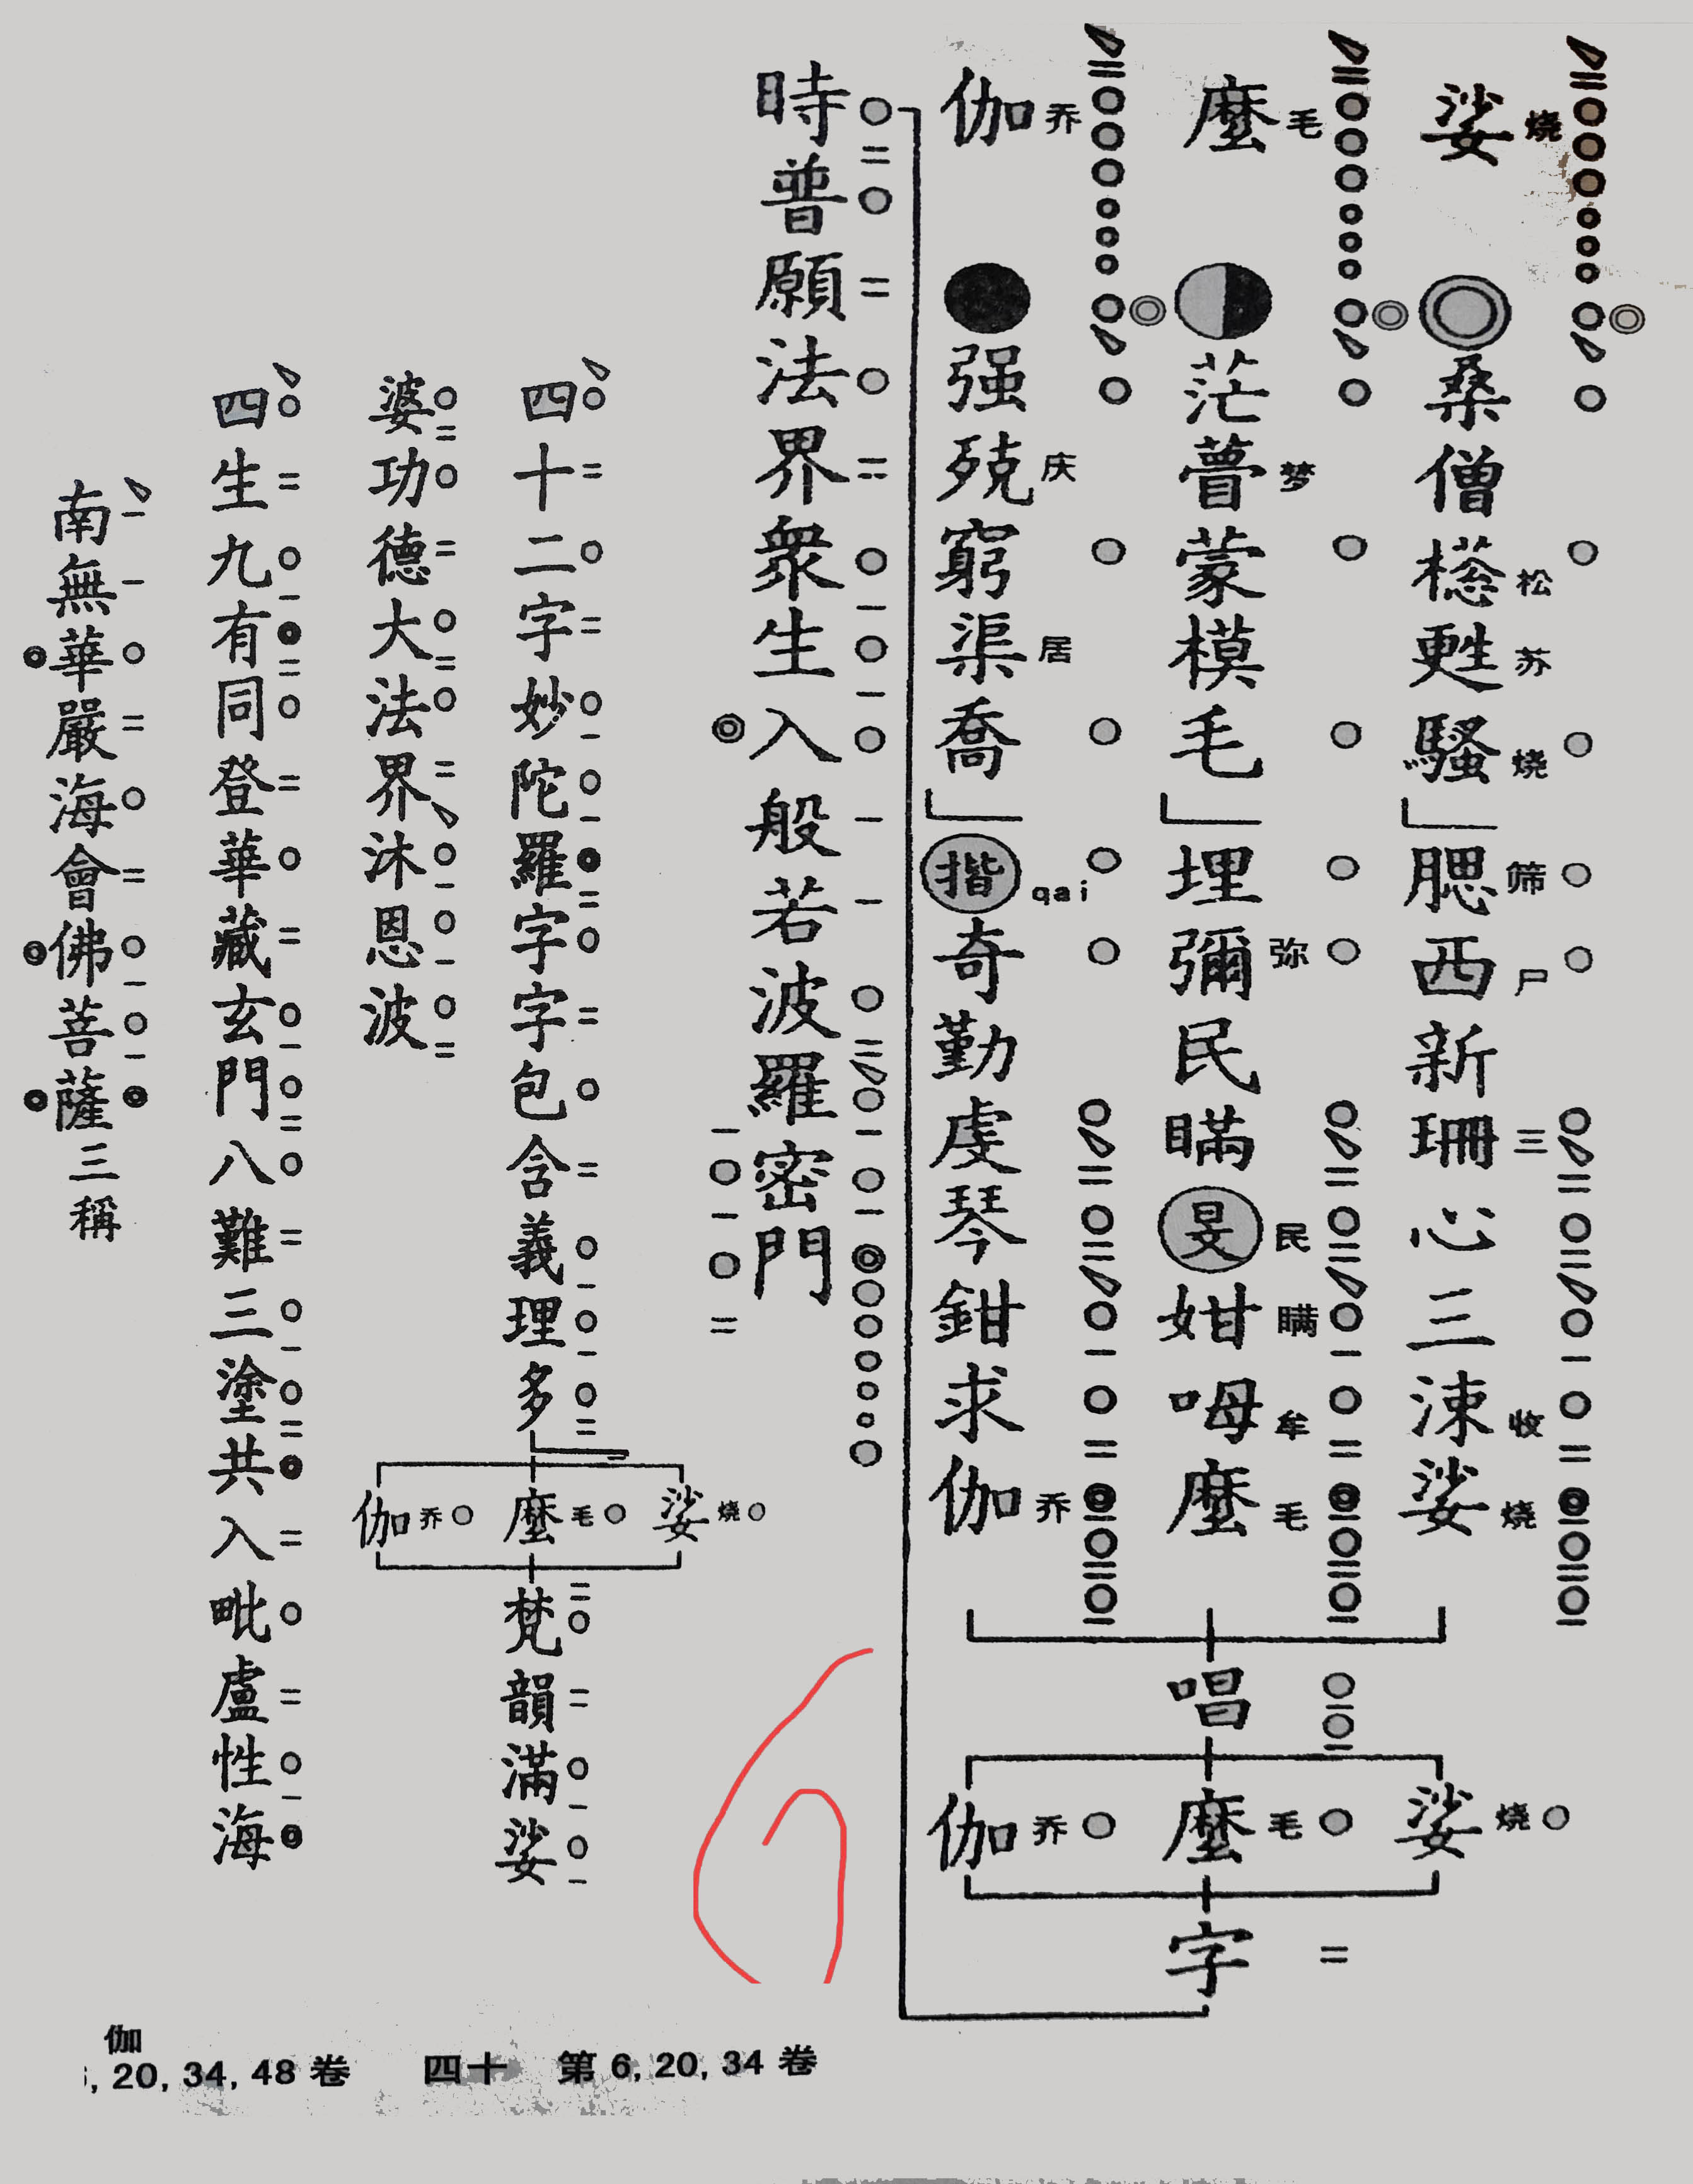 娑 烧
桑僧㯶松甦苏騷烧
腮筛西尸新珊三心三涑收娑烧
麼 毛
茫瞢梦蒙模毛
埋彌弥民瞞旻民姏瞒呣牟麼毛
伽 乔
强殑庆窮渠居喬
揩qai奇勤虔琴鉗求伽乔
唱
娑烧 麼毛 伽乔
字
時普願法界衆生入般若波羅密門
四十二字妙陀羅字字包含義理多
娑烧 麼毛 伽乔
梵韻滿娑
婆功德大法界沐恩波
四生九有同登華藏玄門八難三塗共入毗盧性海
南無華嚴海會佛菩薩三稱
伽
, 20, 34, 48 卷 四十 第 6, 20, 34 卷